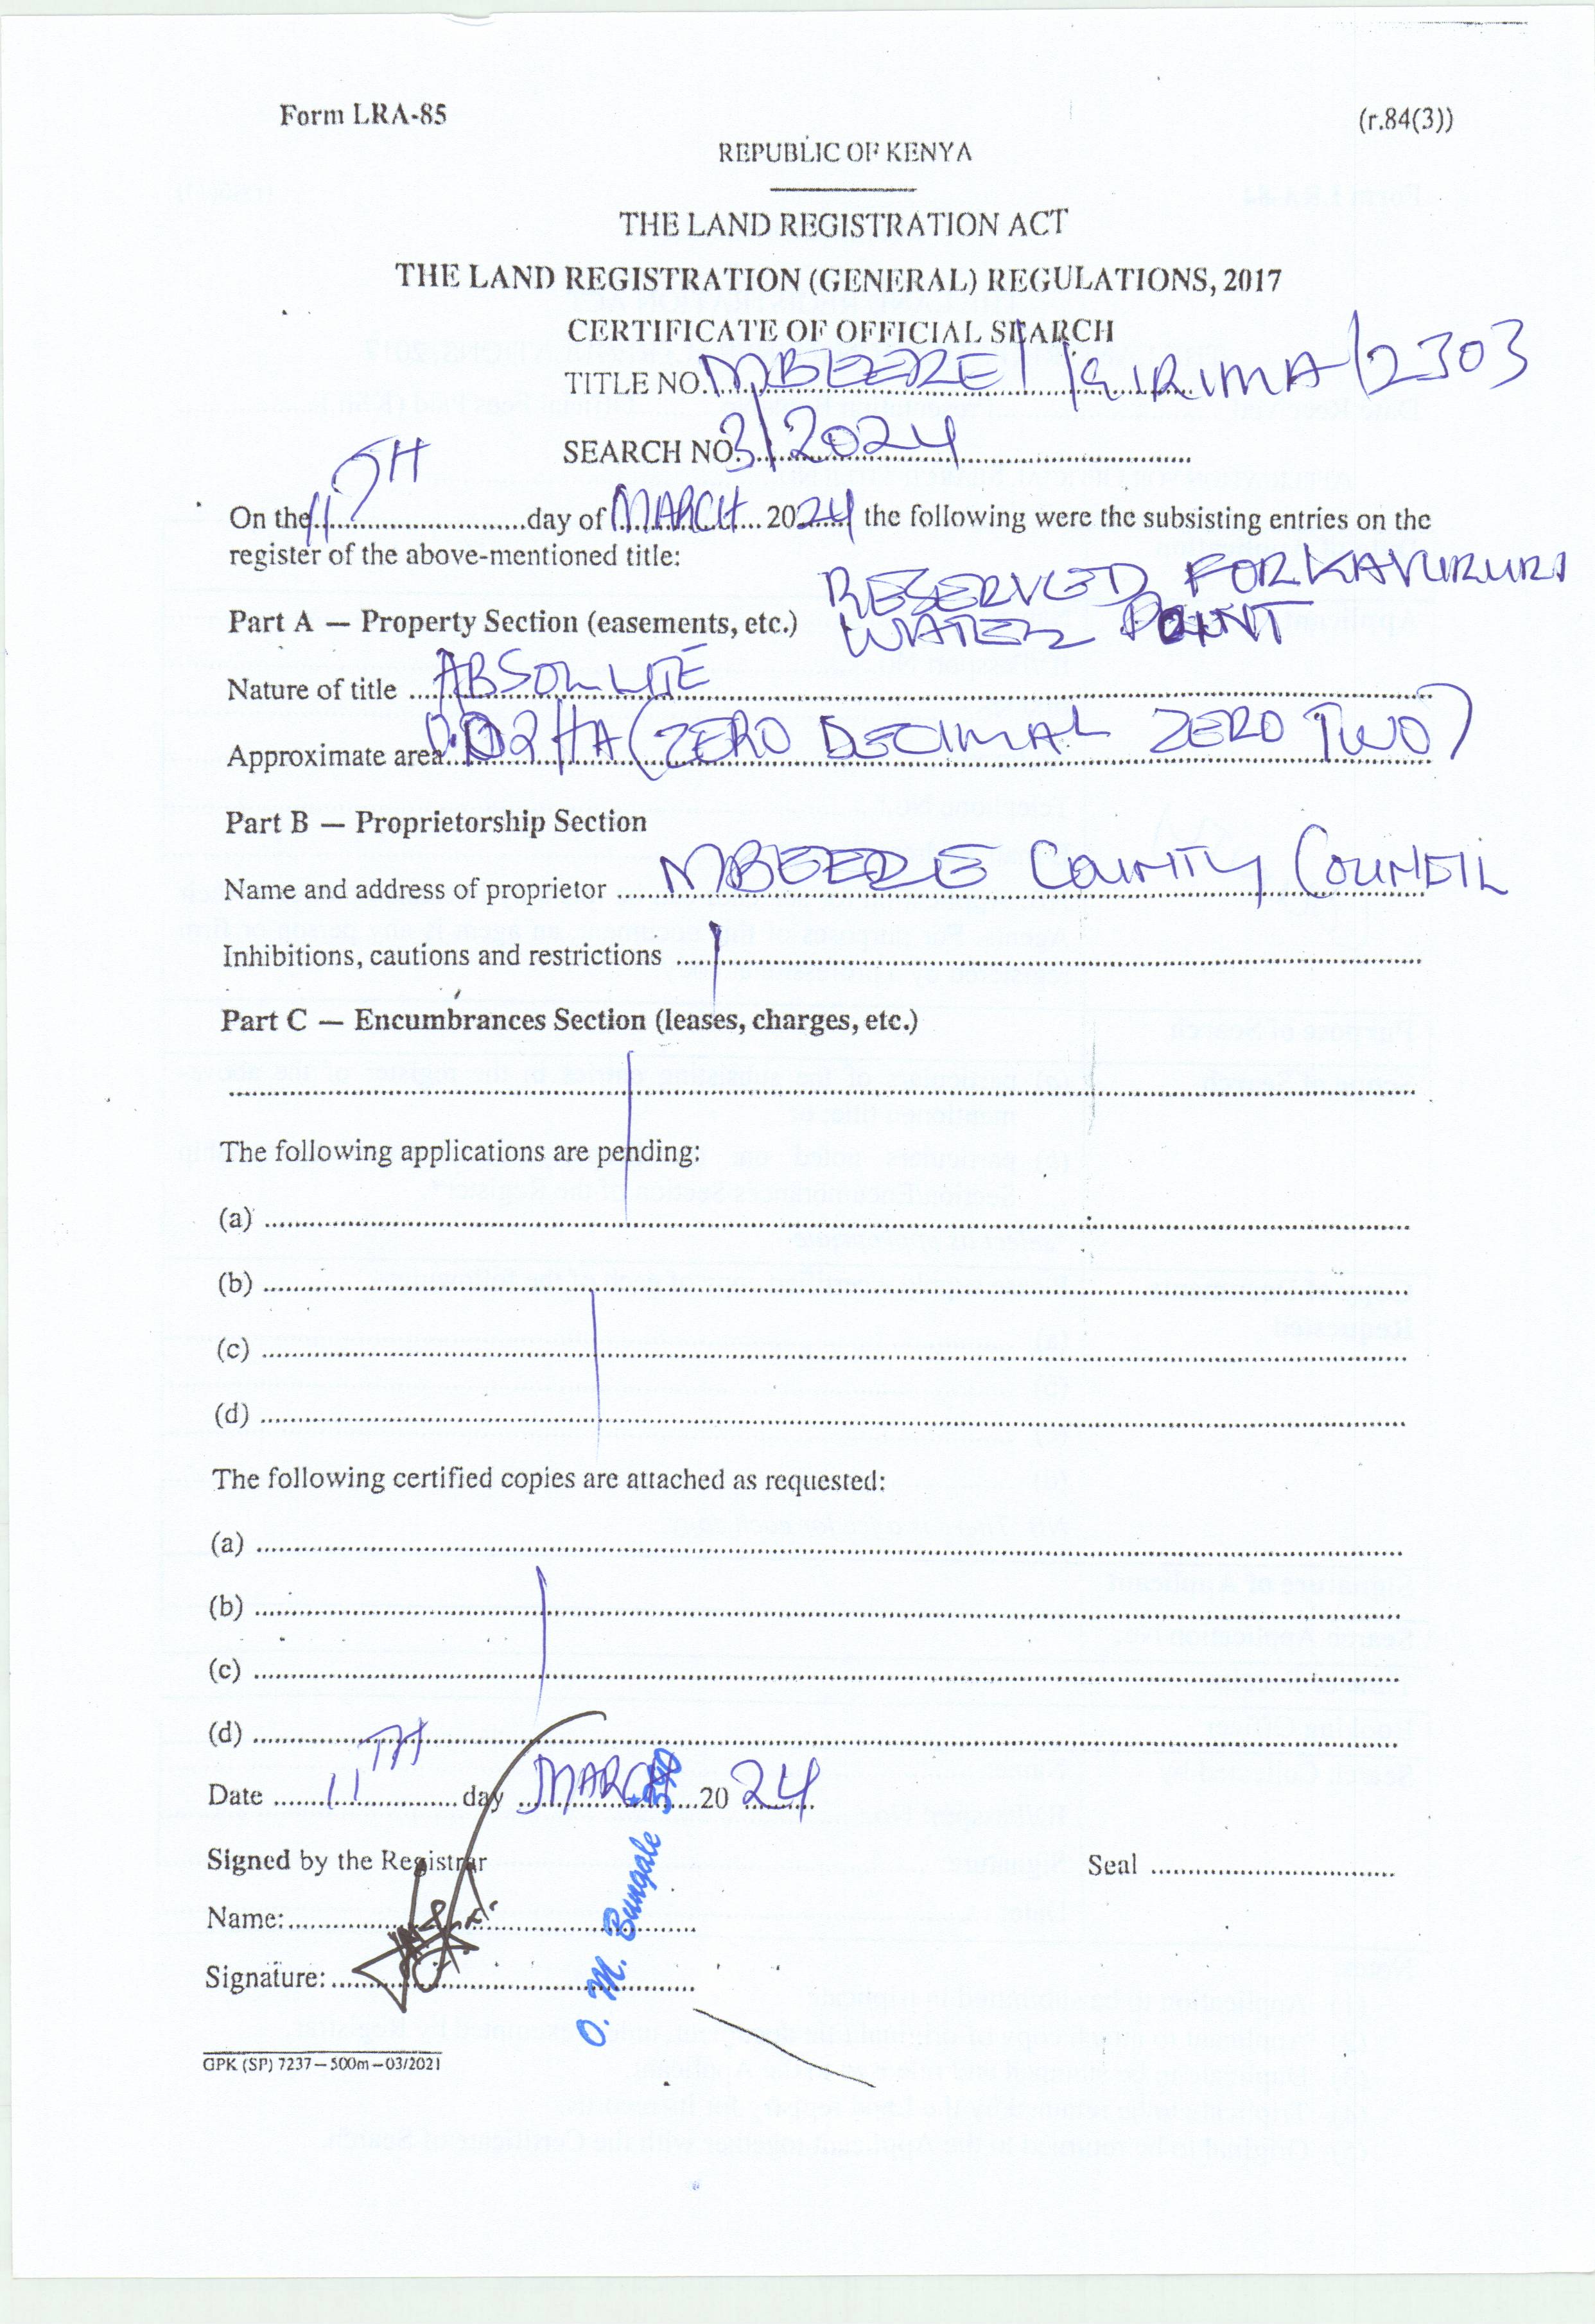 Form LRA-85 (r.84(3))
REPUBLIC OF KENYA
THE LAND REGISTRATION ACT
THE LAND REGISTRATION (GENERAL) REGULATIONS, 2017
CERTIFICATE OF OFFICIAL SEARCH
TITLE NO. MBEERE / KIRIMA / 2303
SEARCH NO. 3/2024
On the 11TH day of MARCH 2024 the following were the subsisting entries on the
register of the above-mentioned title:
RESERVED FOR KAVURURI
Part A — Property Section (easements, etc.) WATER POINT
Nature of title ABSOLUTE
Approximate area 0.02HA (ZERO DECIMAL ZERO TWO)
Part B — Proprietorship Section
Name and address of proprietor MBEERE COUNTY COUNCIL
Inhibitions, cautions and restrictions
Part C — Encumbrances Section (leases, charges, etc.)
The following applications are pending:
(a)
(b)
(c)
(d)
The following certified copies are attached as requested:
(a)
(b)
(c)
(d)
Date 11TH day MARCH 2024
Signed by the Registrar Seal
Name:
Signature:
O. M. Bungale * 390
GPK (SP) 7237—500m—03/2021